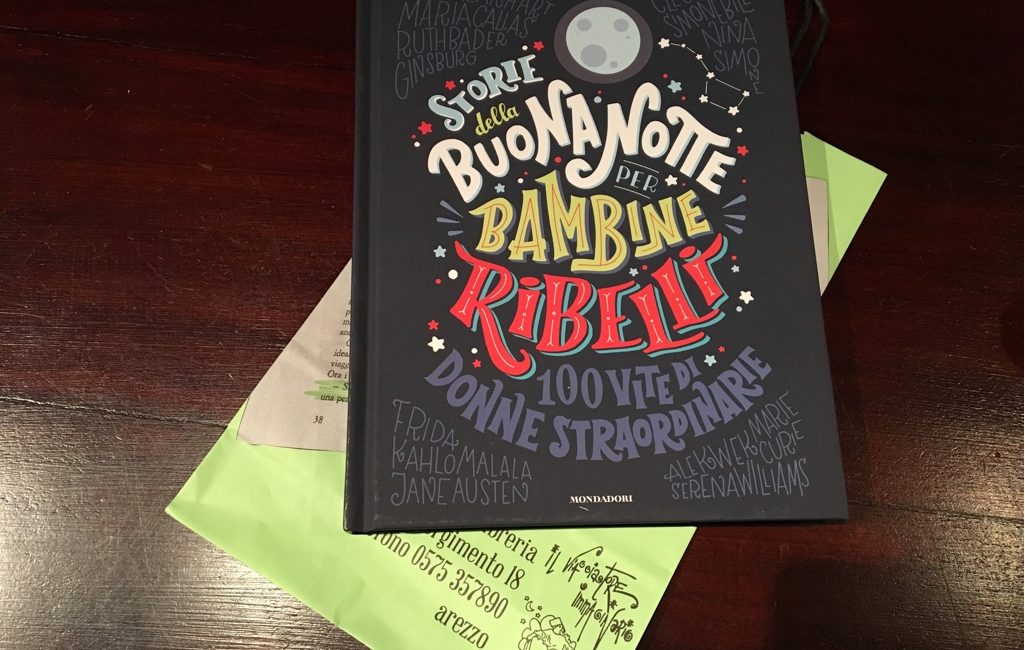 MARIA CALLAS
RUTH BADER
GINSBURG
SIMONE BILE
NINA
SIMONE
STORIE
della
BUONANOTTE
PER
BAMBINE
RIBELLI
100 VITE DI
DONNE STRAORDINARIE
FRIDA
KAHLO MALALA
JANE AUSTEN
MARIE
ALEK WEK CURIE
SERENA WILLIAMS
MONDADORI
ideal
viagg
Ora i
– S
una per
38
breria
rgimento 18
fono 0575 357890
arezzo
il viaggiatore
immaginario